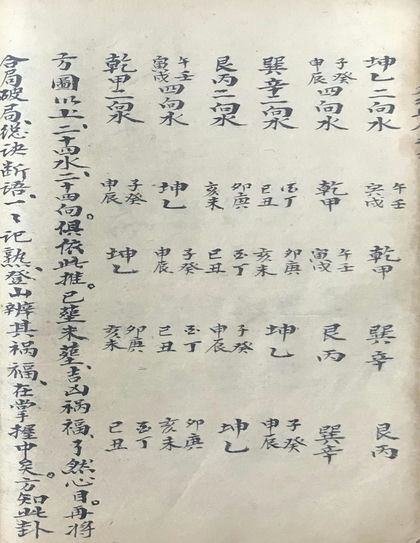 坤乙二向水 午壬寅戌 乾甲 巽辛 艮丙
子癸申辰四向水 乾甲 午壬寅戌 艮丙 巽辛
巽辛二向水 酉丁巳丑 卯庚亥未 坤乙 子癸申辰
艮丙二向水 卯庚亥未 酉丁巳丑 子癸申辰 坤乙
午壬寅戌四向水 坤乙 子癸申辰 酉丁巳丑 卯庚亥未
乾甲二向水 子癸申辰 坤乙 卯庚亥未 酉丁巳丑
方圖以上、二十四水、二十四向俱依此推。已葬未葬、吉凶祸福、了然心目。再将
合局破局、总诀断语、一一记熟、登山辨其祸福、在掌握中矣。方知此卦